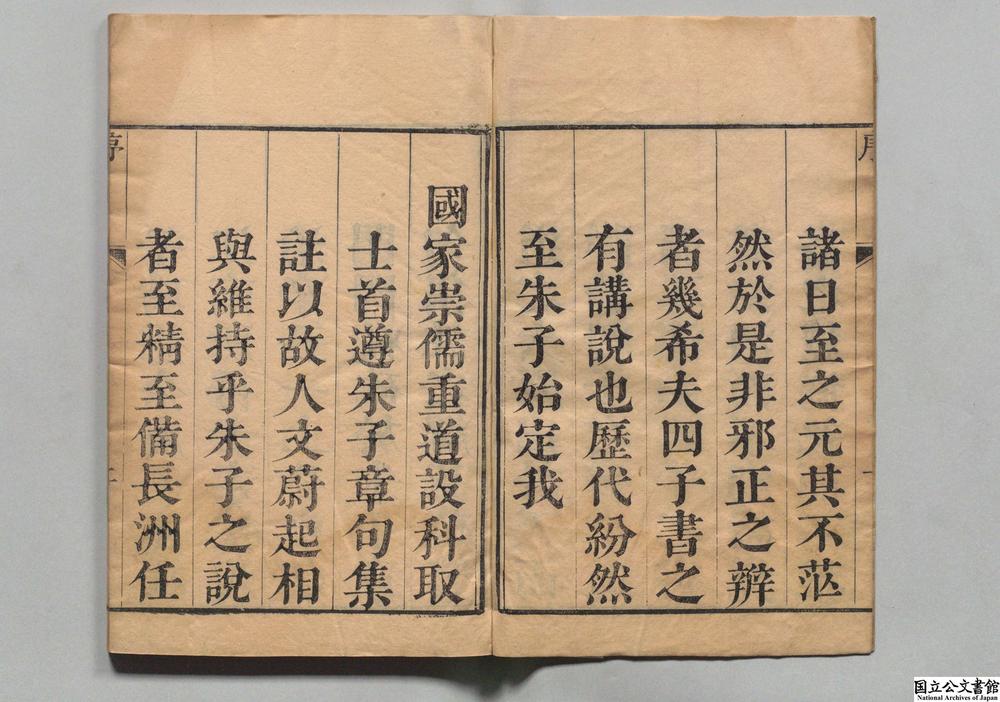 諸日至之元其不茫
然於是非邪正之辨
者幾希夫四子書之
有講說也歷代紛然
至朱子始定我
國家崇儒重道設科取
士首遵朱子章句集
註以故人文蔚起相
與維持乎朱子之說
者至精至備長洲任
序
国立公文書館
National Archives of Japan